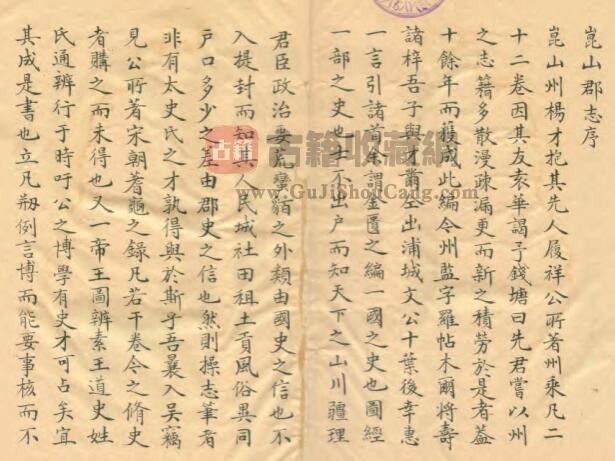 崑山郡志序
崑山州楊才抱其先人履祥公所著州乘凡二
十二卷因其友袁華謁予錢塘曰先君嘗以州
之志籍多散漫疎漏更而新之積勞於是者葢
十餘年而獲成此編今州監字羅帖木爾將壽
諸梓吾子與才葢本出浦城文公十葉後幸惠
一言引諸首余謂金匱之編一國之史也圖經
一部之史也士不出戶而知天下之山川疆理
君臣政治要荒蠻貊之外類由國史之信也不
入提封而知其人民城社田租土貢風俗異同
戶口多少之差由郡史之信也然則操志筆者
非有太史氏之才孰得與於斯乎吾曩入吴竊
見公所著宋朝蓍龜之錄凡若干卷今之脩史
者購之而未得也又一帝王圖辨素王道史姓
氏通辨行于時吁公之博學有史才可占矣宜
其成是書也立凡刱例言博而能要事核而不
古籍
古籍收藏網
www.GuJiShouCang.com